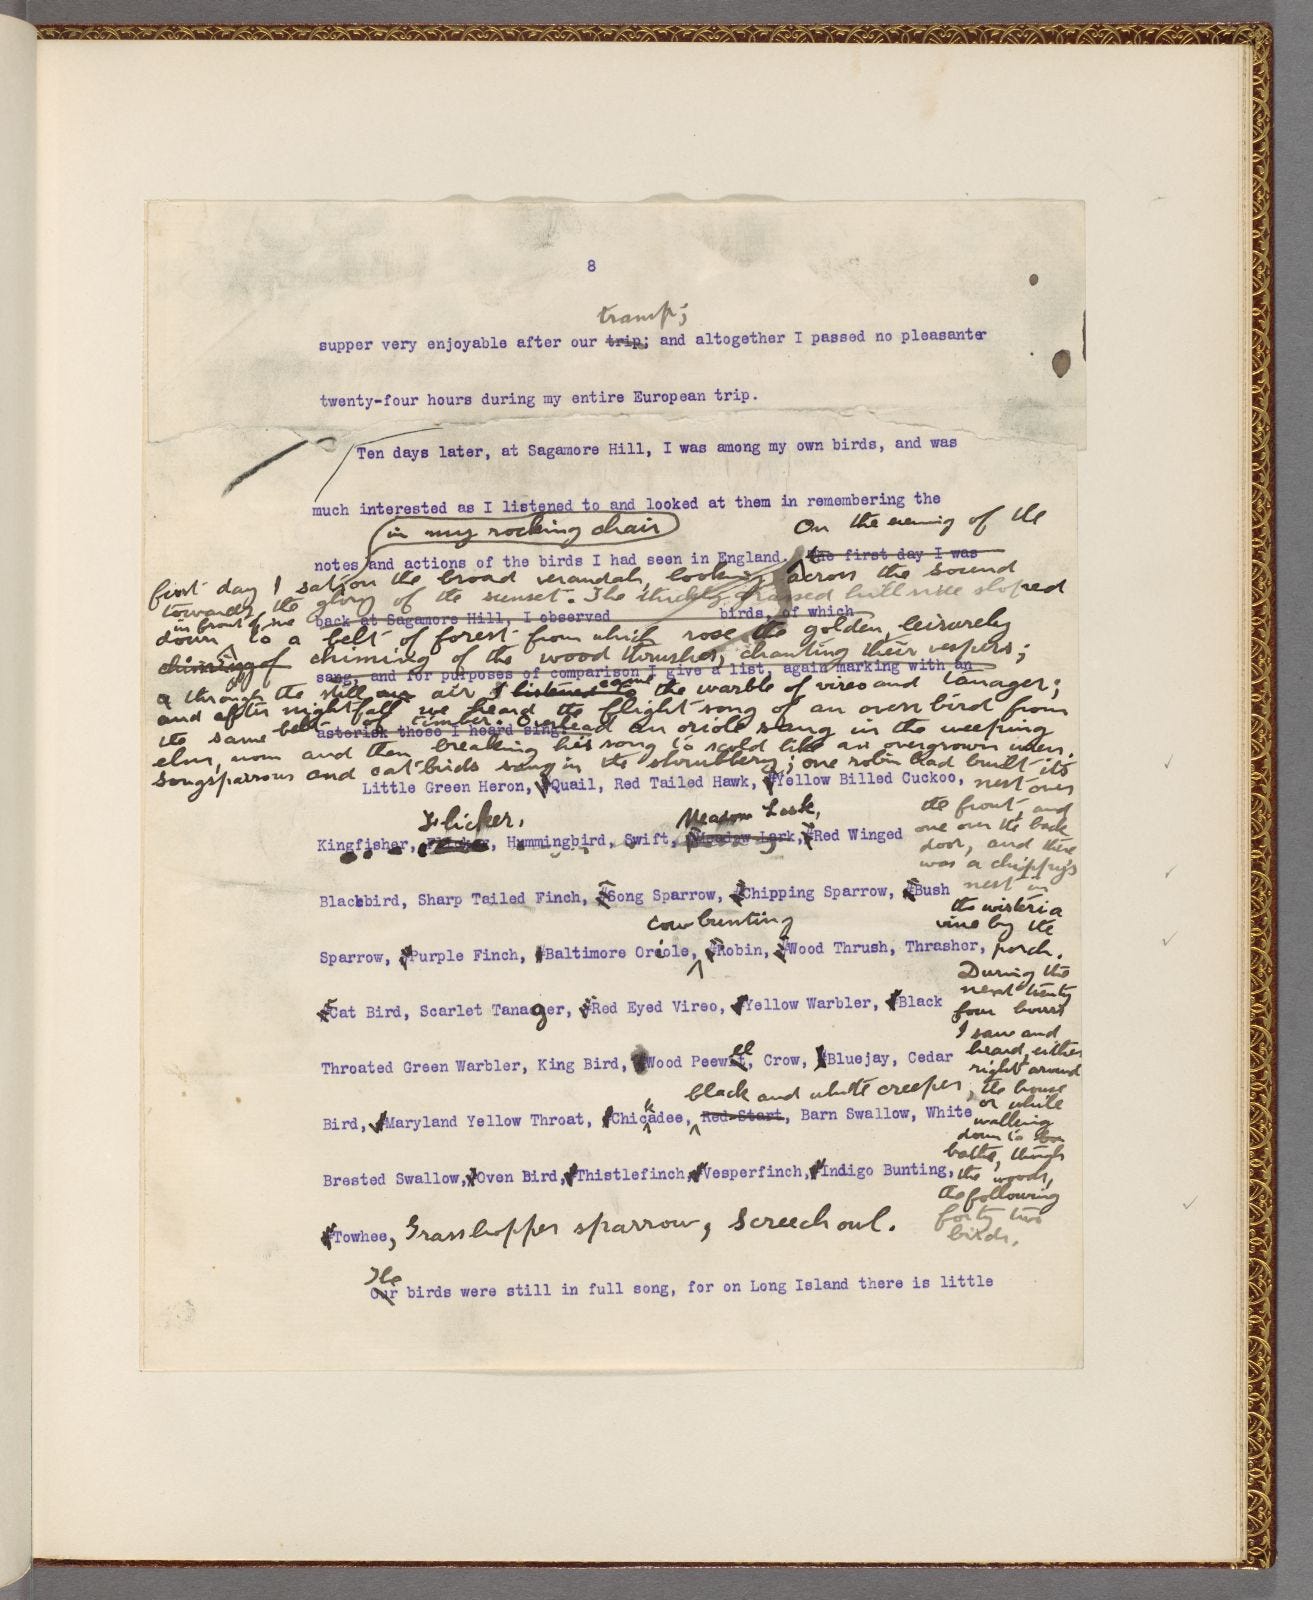 8
tramp;
supper very enjoyable after our trip; and altogether I passed no pleasanter
twenty-four hours during my entire European trip.
Ten days later, at Sagamore Hill, I was among my own birds, and was
much interested as I listened to and looked at them in remembering the
in my rocking chair
On the evening of the
notes and actions of the birds I had seen in England. The first day I was
first day I sat on the broad verandah, looking across the sound
towards the glory of the sunset. The thickly grassed hillside sloped
in front of me
back at Sagamore Hill, I observed birds, of which
down to a belt of forest from which rose the golden, leisurely
chiming of chiming of the wood thrushes, chanting their vespers;
sang, and for purposes of comparison I give a list, again marking with an
through the still air I listened to came the warble of vireo and tanager;
and after nightfall we heard the flight song of an oven bird from
the same belt of timber. Overhead an oriole sang in the weeping
asterisk those I heard sing.
elm, now and then breaking his song to scold like an overgrown wren.
Songsparrows and catbirds sang in the shrubbery; one robin had built its
Little Green Heron, Quail, Red Tailed Hawk, Yellow Billed Cuckoo,
nest over
the front, and
one over the back
door, and there
was a chippy's
nest in
the wisteria
vine by the
porch.
During the
next twenty
four hours
I saw and
heard, either
right around
the house
or while
walking
down to
bathe, through
the woods,
the following
forty two
birds.
Flicker,
Meadow Lark,
Kingfisher, Flicker, Hummingbird, Swift, Meadow Lark, Red Winged
Blackbird, Sharp Tailed Finch, Song Sparrow, Chipping Sparrow, Bush
cow bunting
Sparrow, Purple Finch, Baltimore Oriole, Robin, Wood Thrush, Thrasher,
Cat Bird, Scarlet Tanager, Red Eyed Vireo, Yellow Warbler, Black
ee
Throated Green Warbler, King Bird, Wood Peewit, Crow, Bluejay, Cedar
black and white creeper,
k
Bird, Maryland Yellow Throat, Chicadee, Red Start, Barn Swallow, White
Brested Swallow, Oven Bird, Thistlefinch, Vesperfinch, Indigo Bunting,
Towhee, Grasshopper sparrow, Screech owl.
The
Our birds were still in full song, for on Long Island there is little